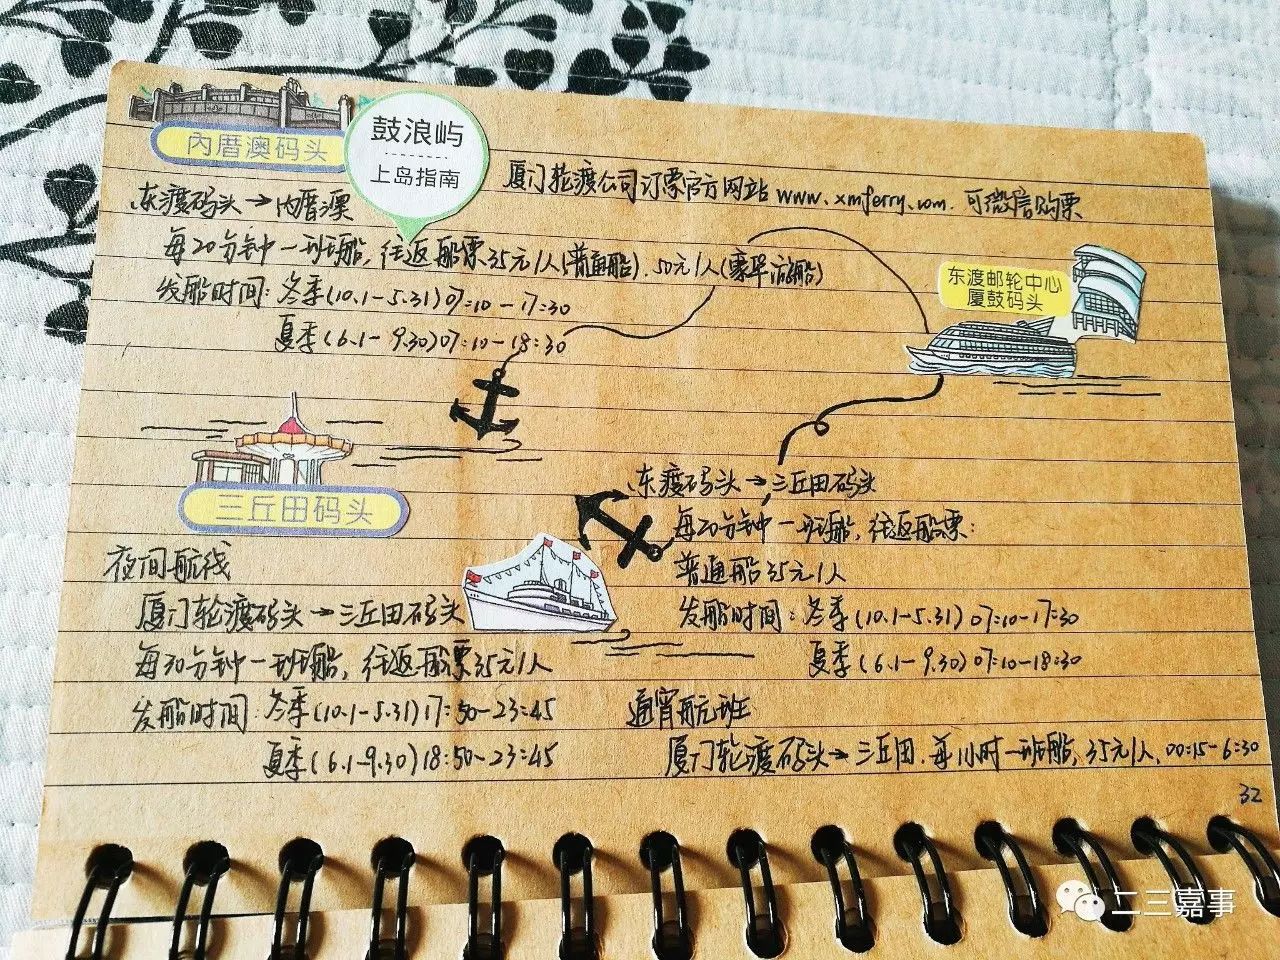 内厝澳码头
鼓浪屿
上岛指南
厦门轮渡公司订票官方网站 www.xmferry.com. 可微信购票
东渡码头→内厝澳
每20分钟一班船,往返船票35元/人(普通船).50元/人(豪华游船)
发船时间:冬季(10.1-5.31)07:10-17:30
夏季(6.1-9.30)07:10-18:30
东渡邮轮中心
厦鼓码头
三丘田码头
夜间航线
厦门轮渡码头→三丘田码头
每30分钟一班船,往返船票35元/人
发船时间:冬季(10.1-5.31)17:50-23:45
夏季(6.1-9.30)18:50-23:45
东渡码头→三丘田码头
每20分钟一班船,往返船票:
普通船35元/人
发船时间:冬季(10.1-5.31)07:10-17:30
夏季(6.1-9.30)07:10-18:30
通宵航班
厦门轮渡码头→三丘田.每1小时一班船,35元/人,00:15-6:30
32
二三嘉事